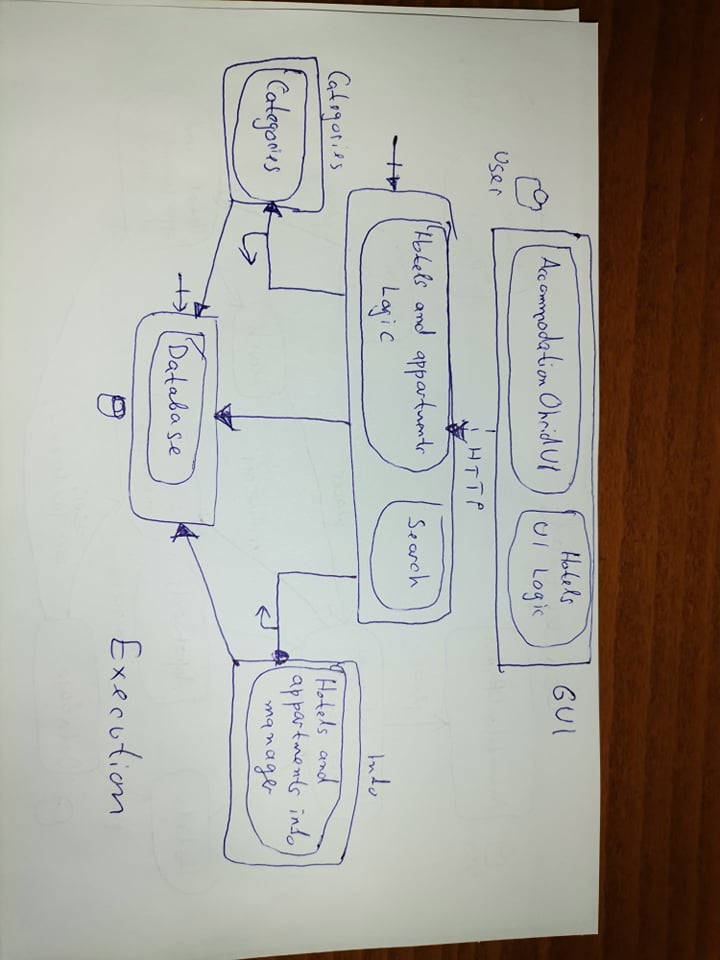 Accommodation Ohrid UI
Hotels
UI Logic
GUI
User
HTTP
Hotels and appartments
Logic
Search
Info
Categories
Categories
Hotels and
appartments info
manager
Database
Execution